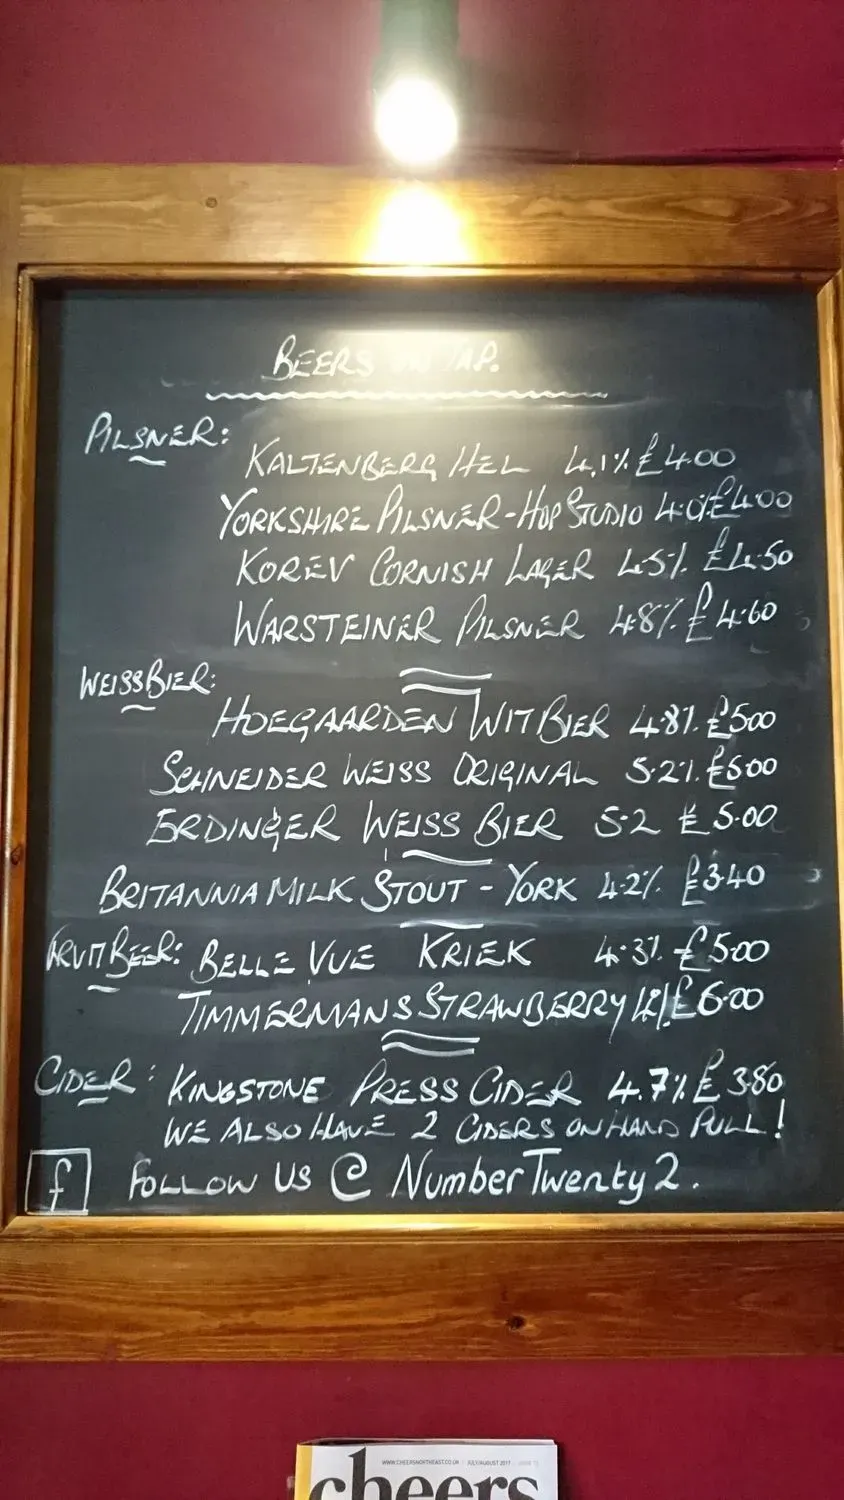 BEERS ON TAP.
PILSNER:
KALTENBERG HEL 4.1% £4.00
YORKSHIRE PILSNER-HOP STUDIO 4.0% £4.00
KOREV CORNISH LAGER 4.5% £4.50
WARSTEINER PILSNER 4.8% £4.60
WEISSBIER:
HOEGAARDEN WITBIER 4.8% £5.00
SCHNEIDER WEISS ORIGINAL 5.2% £5.00
ERDINGER WEISS BIER 5.2 £5.00
BRITANNIA MILK STOUT - YORK 4.2% £3.40
FRUIT BEER: BELLE VUE KRIEK 4.3% £5.00
TIMMERMANS STRAWBERRY £6.00
CIDER: KINGSTONE PRESS CIDER 4.7% £3.80
WE ALSO HAVE 2 CIDERS ON HAND PULL!
f FOLLOW US @ NumberTwenty2.
WWW.CHEERSNORTHEAST.CO.UK JULY/AUGUST 2017
cheers